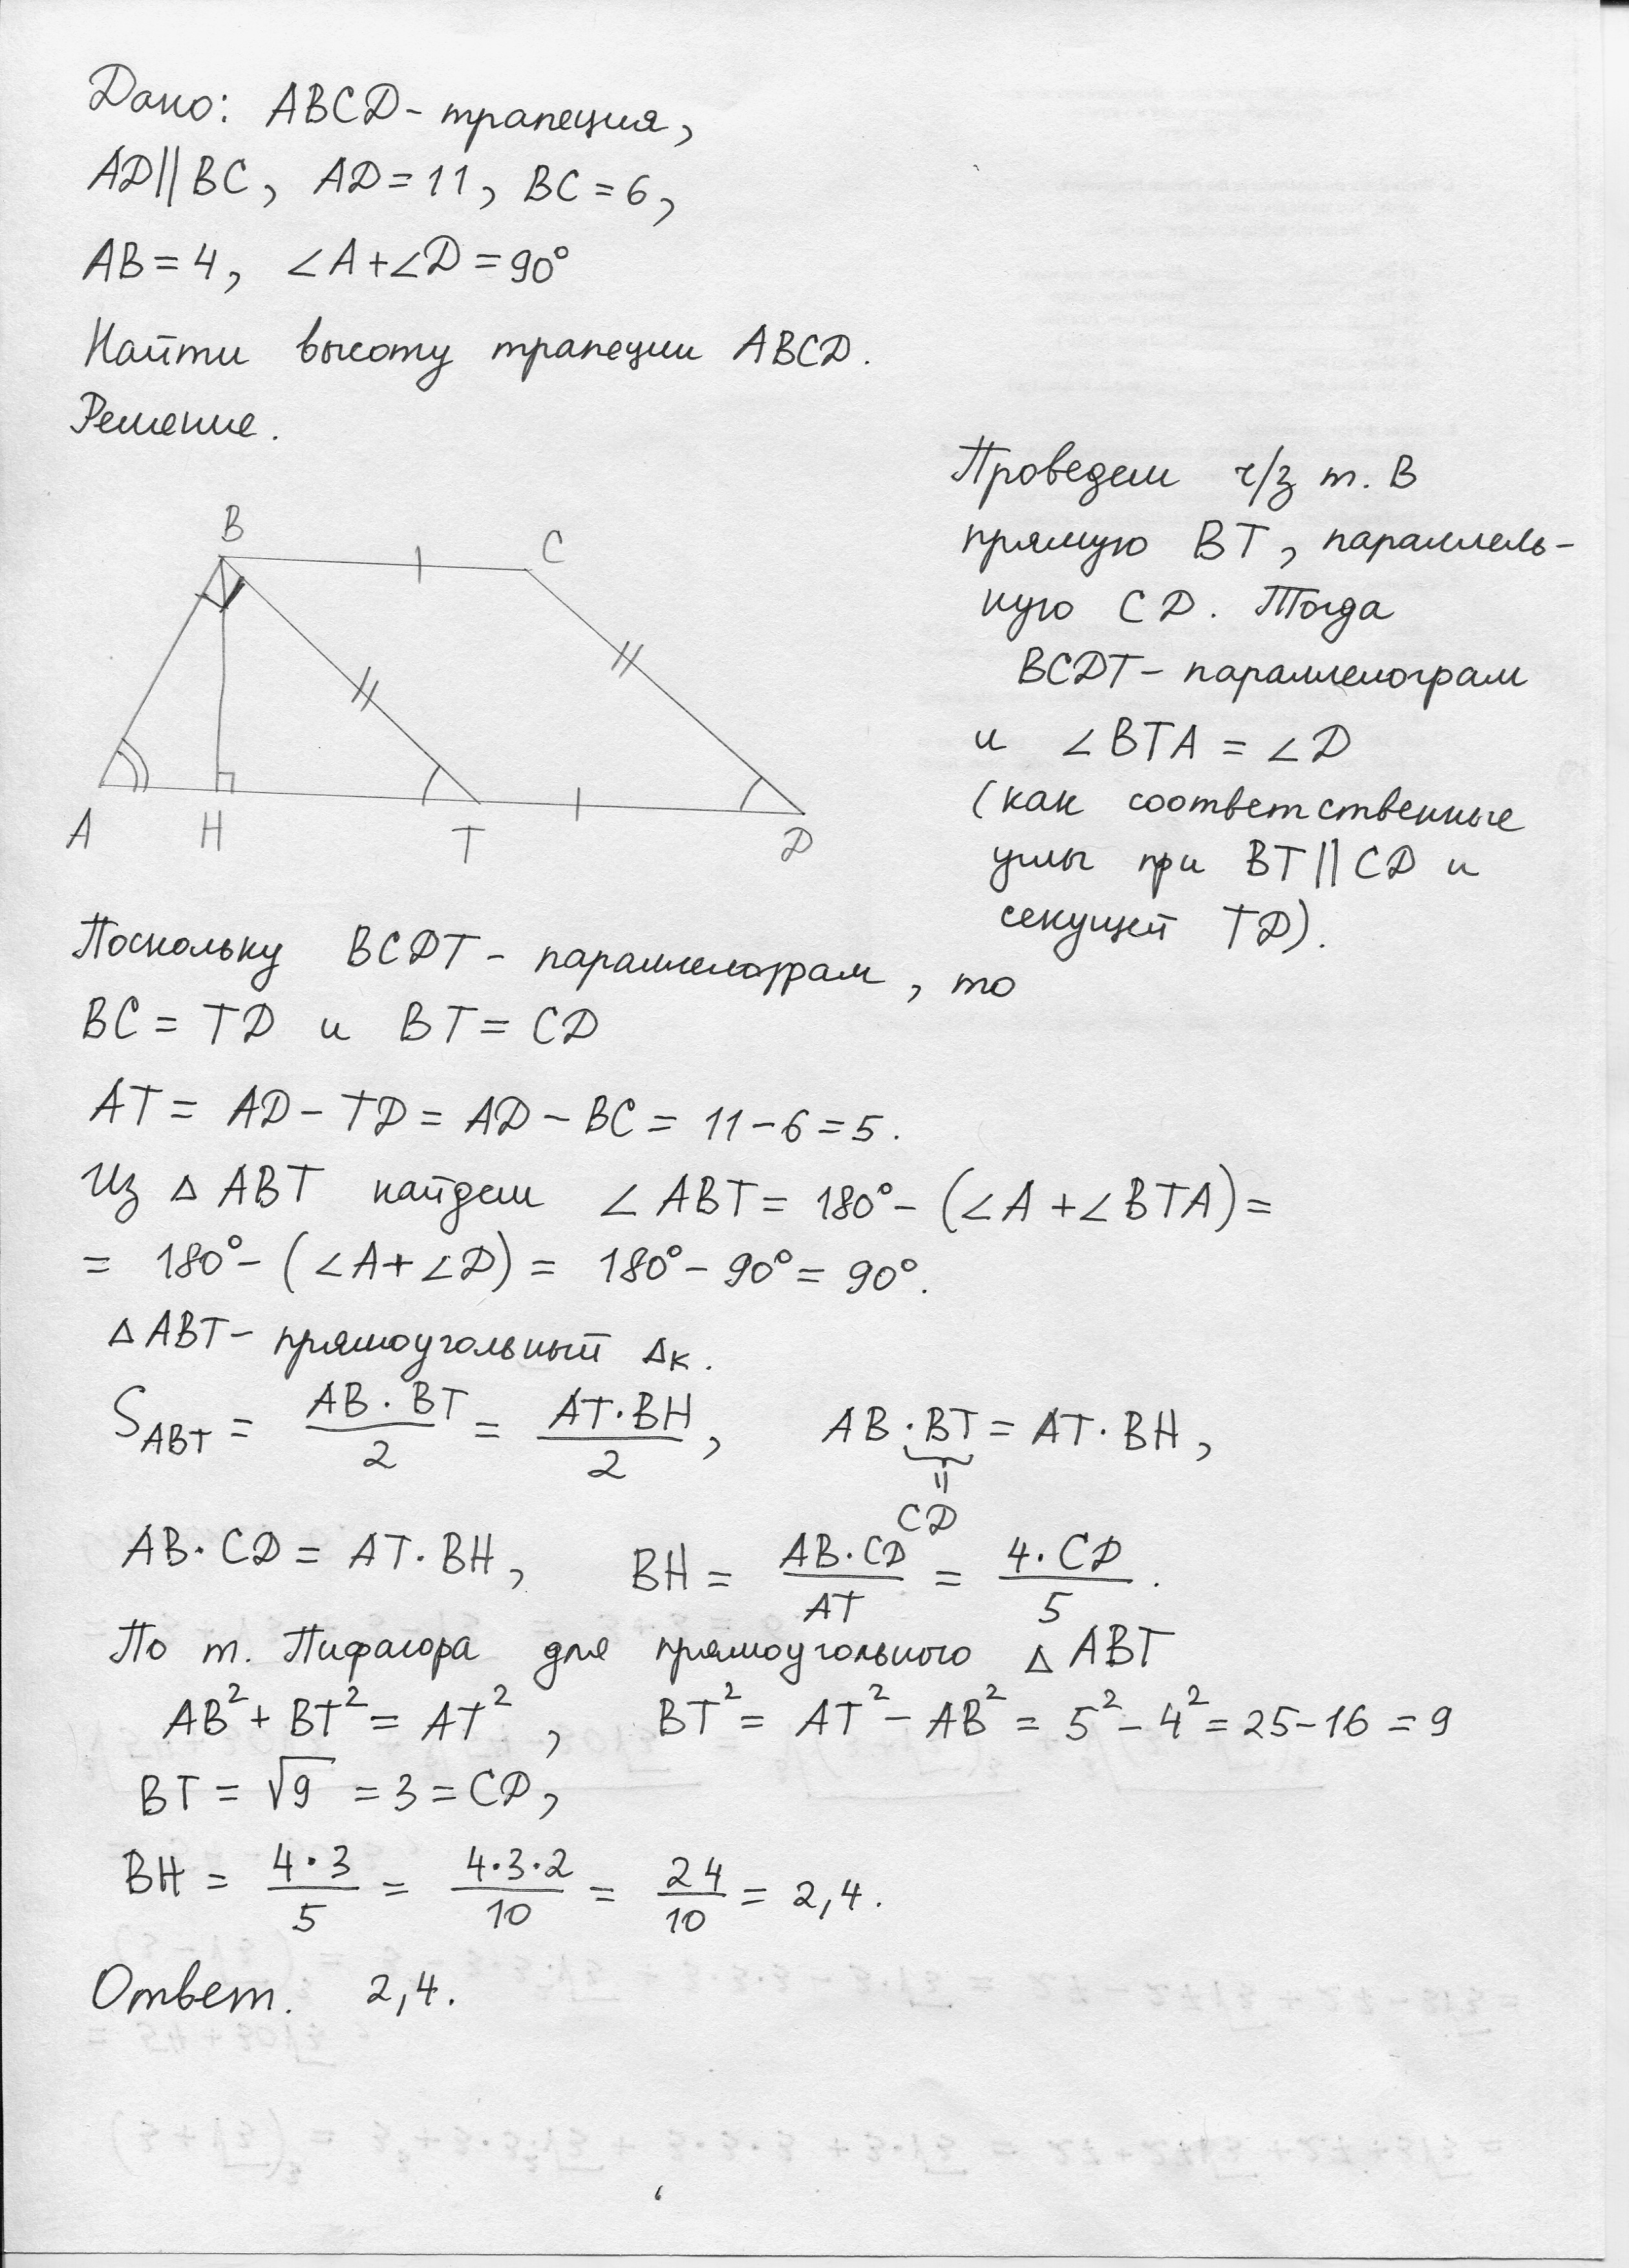 Дано: ABCD - трапеция,
AD||BC, AD = 11, BC = 6,
AB = 4, ∠A+∠D = 90°
Найти высоту трапеции ABCD.
Решение.
Проведем ч/з т. B
прямую BT, параллель-
ную CD. Тогда
BCDT - параллелограм
и ∠BTA = ∠D
(как соответственные
углы при BT||CD и
секущей TD).
B
C
A
H
T
D
Поскольку BCDT - параллелограм, то
BC = TD и BT = CD
AT = AD - TD = AD - BC = 11 - 6 = 5.
Из △ABT найдем ∠ABT = 180° - (∠A + ∠BTA) =
= 180° - (∠A + ∠D) = 180° - 90° = 90°.
△ABT - прямоугольный △к.
S_ABT = AB·BT/2 = AT·BH/2, AB·BT = AT·BH,
=
CD
AB·CD = AT·BH, BH = AB·CD/AT = 4·CD/5.
По т. Пифагора для прямоугольного △ABT
AB² + BT² = AT², BT² = AT² - AB² = 5² - 4² = 25 - 16 = 9
BT = √9 = 3 = CD,
BH = 4·3/5 = 4·3·2/10 = 24/10 = 2,4.
Ответ. 2,4.